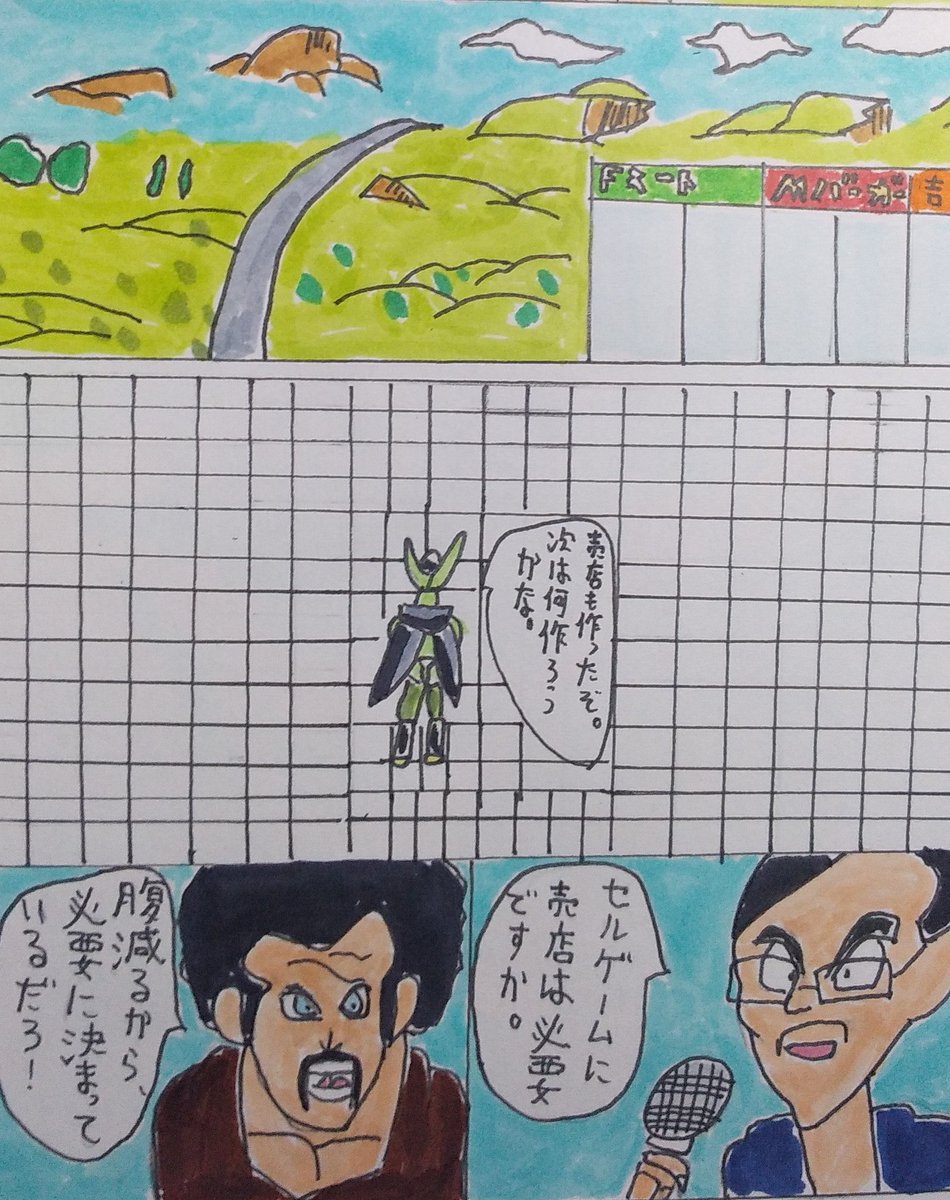 ドスート
Mバーガー
吉
売店も作ったぞ。
次は何作ろう
かな。
セルゲームに
売店は必要
ですか。
腹減るから、
必要に決まって
いるだろ!